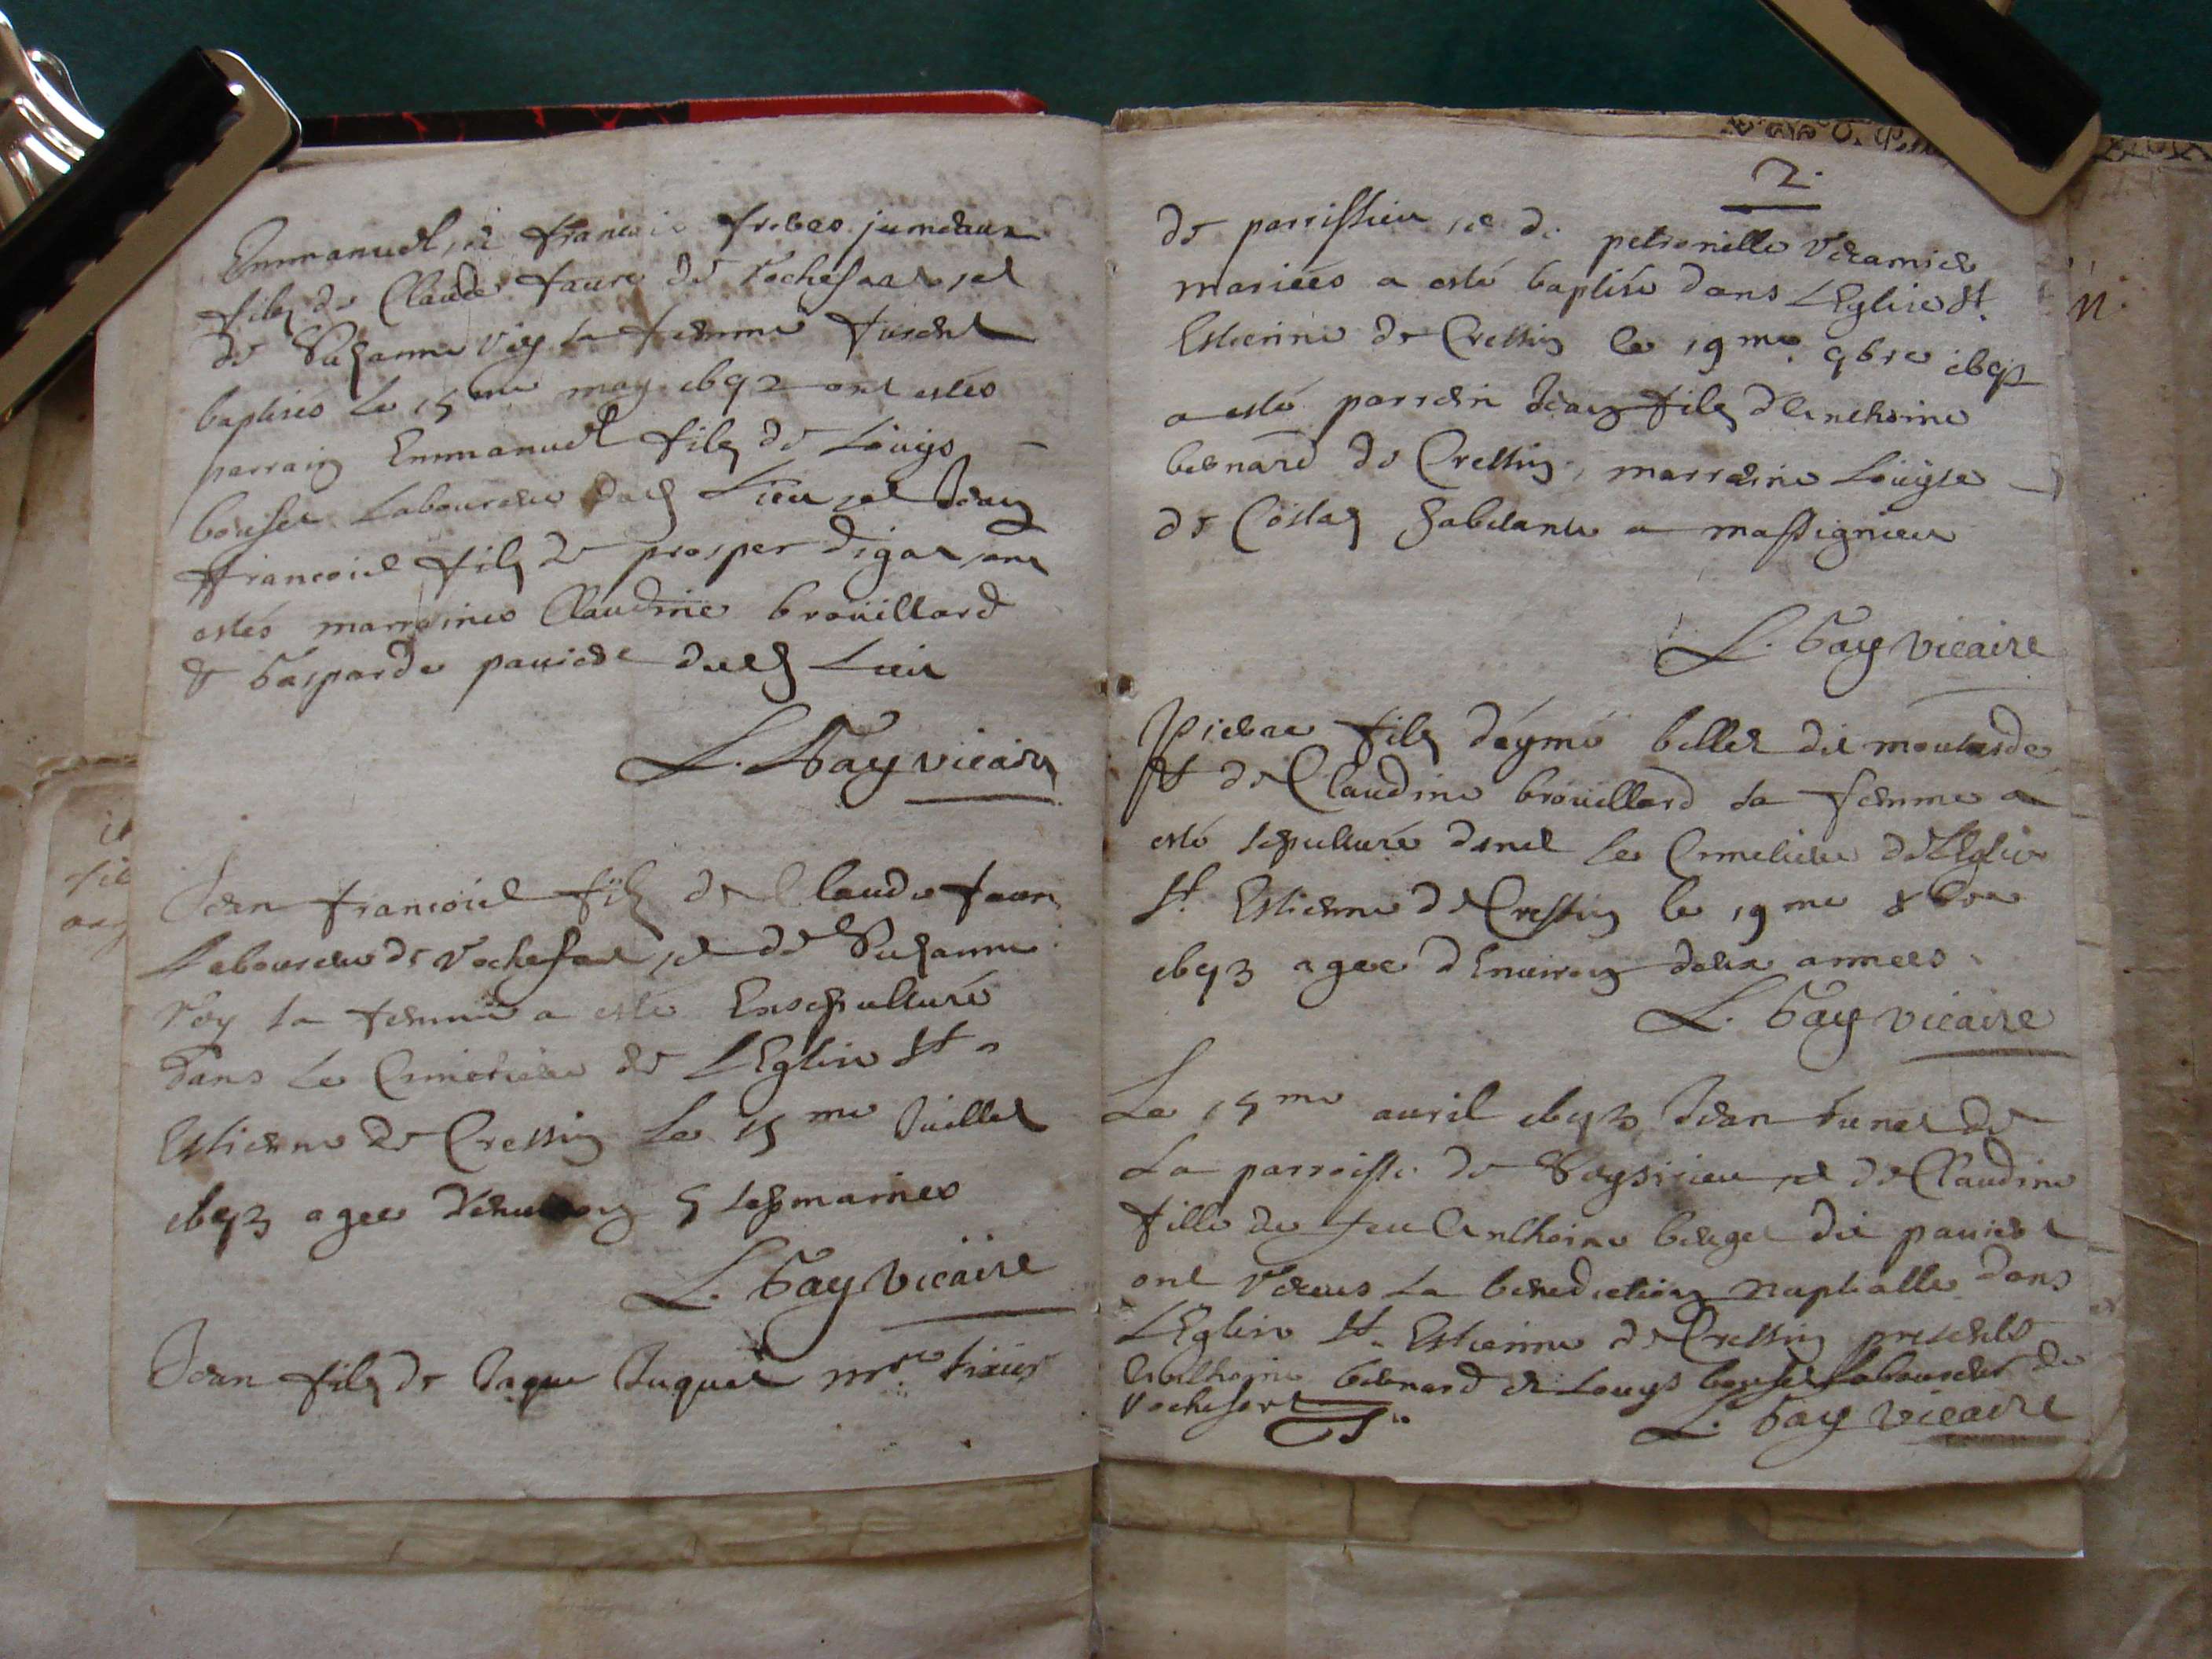 Emmanuel, et francois freres jumeaux
filz de Claude faure de rochefort, et
de Suzanne rey sa femme furent
baptises le 15me may 1692 ont estés
parrain Emmanuel filz de Louys
bouset laboureur dud Lieu et Jean
francois filz de prosper digat, ont
estés marraines Claudine broüillard
& Gasparde pauiet dud Lieu
L. Gay vicaire
Jean francois filz de Claude faure
Laboureur de rochefort, et de Suzanne
rey sa femme a esté Ensepulturé
dans le Cimetiere de LEglise St
Estienne de Cressin le 15me Juillet
1693 agee denuiron 5 sepmaines
L. Gay vicaire
Jean filz de Jaque Juquet mre
2.
de parrissieu, et de petronille
mariées a esté baptisé dans LEglise St.
Estienne de Cressin le 19me. 9bre
a esté parrein Jean filz dAnthoine
bernard de Cressin, marreine Loüyse
de Costaz habitante a massignieu
L. Gay vicaire
Pierre filz déymé bellet dit moutarde
& de Claudine broüillard sa femme a
esté sepulturé dans le Cimetiere de LEglise
St. Estienne de Cressin le 19me 8bre
1693 agee dEnuiron deux annees
L. Gay vicaire
Le 15me auril 1693 Jean de
La parroisse de et de Claudine
fille de feu Anthoine berget dit pauiet
ont receus la benediction nuptialle dans
LEglise St. Estienne de Cressin presents
Anthoine bernard et Louys bouset laboureur de
rochefort
L. Gay vicaire